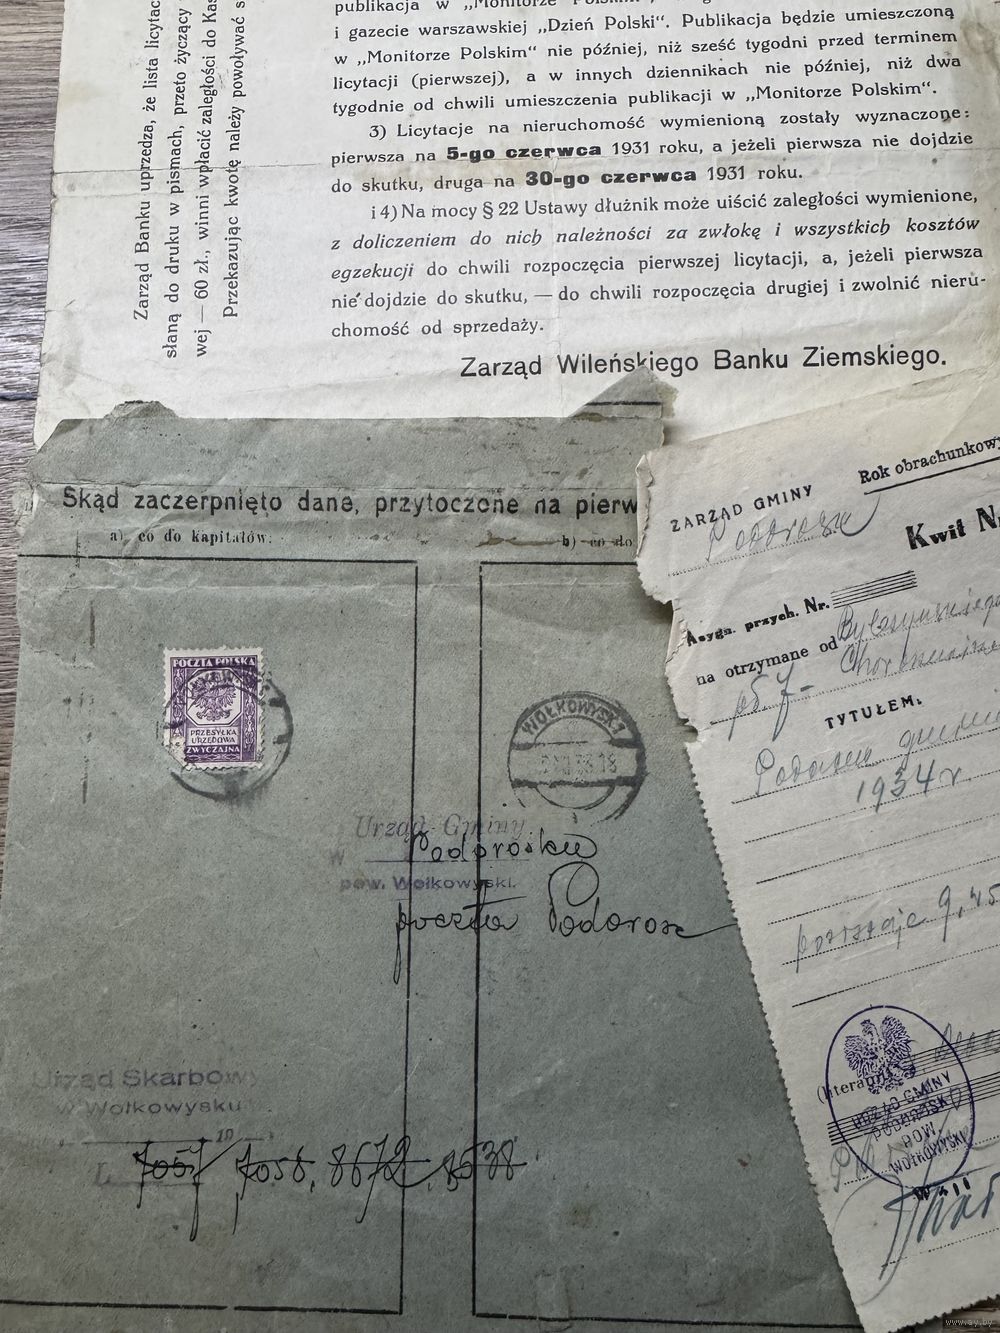 publikacja w „Monitorze Polskim
i gazecie warszawskiej „Dzień Polski“. Publikacja będzie umieszczoną
w „Monitorze Polskim“ nie później, niż sześć tygodni przed terminem
licytacji (pierwszej), a w innych dziennikach nie później, niż dwa
tygodnie od chwili umieszczenia publikacji w „Monitorze Polskim“.
3) Licytacje na nieruchomość wymienioną zostały wyznaczone:
pierwsza na 5-go czerwca 1931 roku, a jeżeli pierwsza nie dojdzie
do skutku, druga na 30-go czerwca 1931 roku.
i 4) Na mocy § 22 Ustawy dłużnik może uiścić zaległości wymienione,
z doliczeniem do nich należności za zwłokę i wszystkich kosztów
egzekucji do chwili rozpoczęcia pierwszej licytacji, a, jeżeli pierwsza
nie dojdzie do skutku, — do chwili rozpoczęcia drugiej i zwolnić nieru-
chomość od sprzedaży.
Zarząd Wileńskiego Banku Ziemskiego.
Zarząd Banku uprzedza, że lista licytac
słaną do druku w pismach, przeto życzący
wej — 60 zł., winni wpłacić zaległości do Kas
Przekazując kwotę należy powoływać s
Skąd zaczerpnięto dane, przytoczone na pierw
a) co do kapitałów:
b) co do
POCZTA POLSKA
PRZESYŁKA
URZĘDOWA
ZWYCZAJNA
WOŁKOWYSK
Urząd Gminy
w Podorosku
pow. Wołkowyski.
poczta Podorosk
Urząd Skarbowy
w Wołkowysku
19
L. 7057 7058, 8672, 8638
ZARZĄD GMINY
Podorosk
Rok obrachunkowy
Kwit Nr
Asygn. przych. Nr.
na otrzymane od
TYTUŁEM:
1934 r.
9,45
(literami)
URZĄD GMINY
PODOROSK
POW.
WOŁKOWYSKI